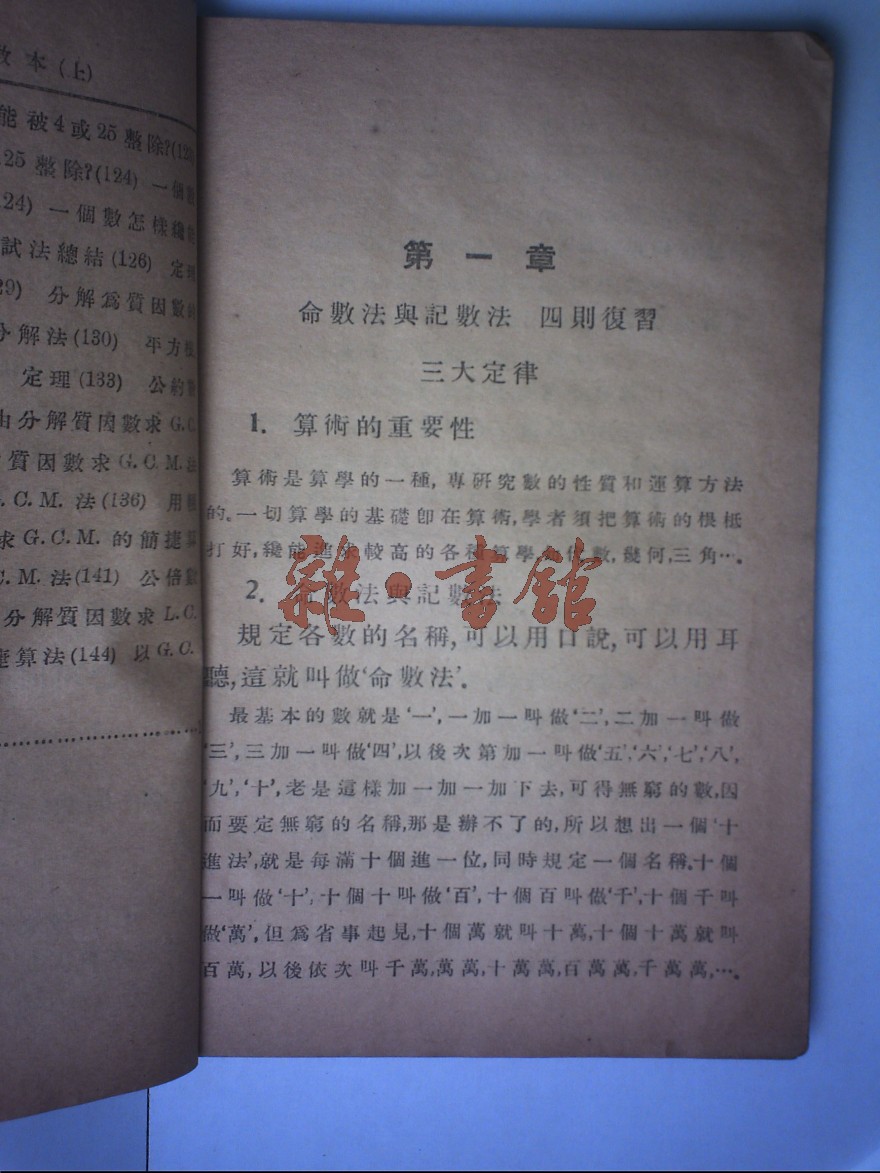 教本(上)
能被4或25整除?(123)
125整除?(124) 一個數
124) 一個數怎樣纔能
試法總結(126) 定理
29) 分解爲質因數的
分解法(130) 平方根
定理(133) 公約數
由分解質因數求G.C.
質因數求G.C.M.法
.C.M.法(136) 用
求G.C.M.的簡捷算
C.M.法(141) 公倍數
分解質因數求L.C.
算法(144) 以G.C.
第一章
命數法與記數法 四則復習
三大定律
1. 算術的重要性
算術是算學的一種,專研究數的性質和運算方法
的。一切算學的基礎卽在算術,學者須把算術的根柢
打好,纔能進求較高的各種算學如代數,幾何,三角…。
雜·書館
2. 命數法與記數法
規定各數的名稱,可以用口說,可以用耳
聽,這就叫做‘命數法’。
最基本的數就是‘一’,一加一叫做‘二’,二加一叫做
‘三’,三加一叫做‘四’,以後次第加一叫做‘五’,‘六’,‘七’,‘八’,
‘九’,‘十’,老是這樣加一加一加下去,可得無窮的數,因
而要定無窮的名稱,那是辦不了的,所以想出一個‘十
進法’,就是每滿十個進一位,同時規定一個名稱,十個
一叫做‘十’,十個十叫做‘百’,十個百叫做‘千’,十個千叫
做‘萬’,但爲省事起見,十個萬就叫十萬,十個十萬就叫
百萬,以後依次叫千萬,萬萬,十萬萬,百萬萬,千萬萬,…。